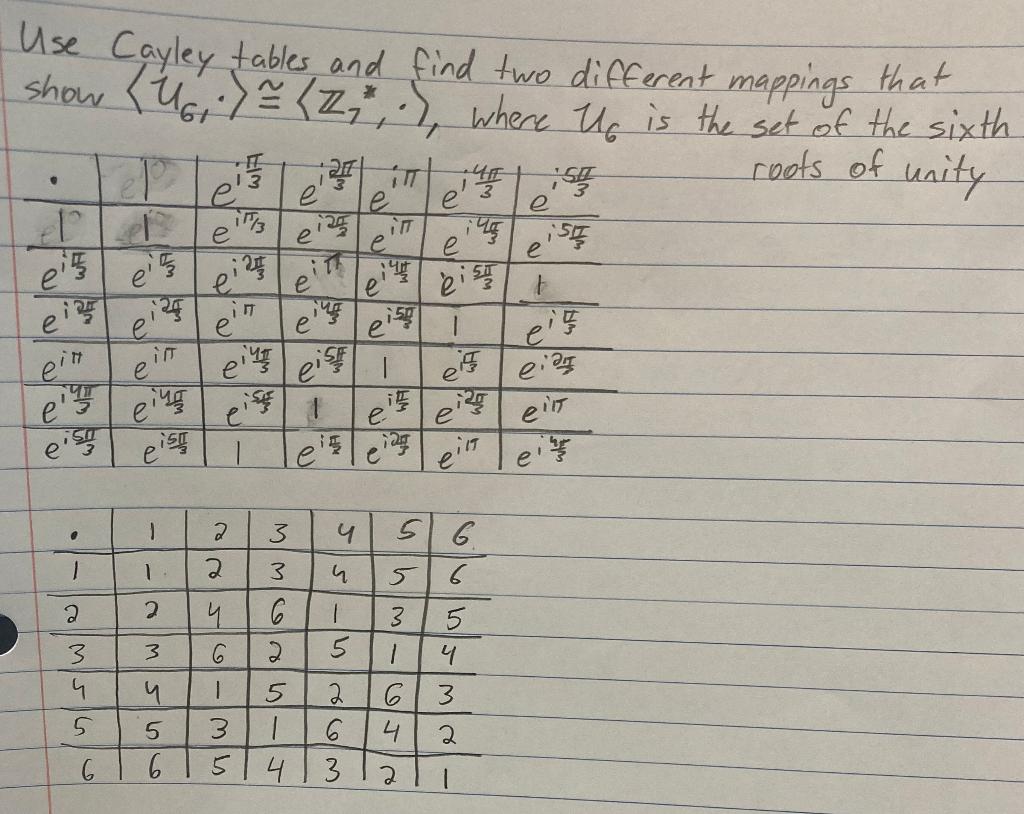 Use Cayley tables and find two different mappings that
show ⟨U₆, ·⟩ ≅ ⟨ℤ₇*, ·⟩, where U₆ is the set of the sixth
roots of unity
· | 1 | e^{iπ/3} | e^{i2π/3} | e^{iπ} | e^{i4π/3} | e^{i5π/3}
1 | 1 | e^{iπ/3} | e^{i2π/3} | e^{iπ} | e^{i4π/3} | e^{i5π/3}
e^{iπ/3} | e^{iπ/3} | e^{i2π/3} | e^{iπ} | e^{i4π/3} | e^{i5π/3} | 1
e^{i2π/3} | e^{i2π/3} | e^{iπ} | e^{i4π/3} | e^{i5π/3} | 1 | e^{iπ/3}
e^{iπ} | e^{iπ} | e^{i4π/3} | e^{i5π/3} | 1 | e^{iπ/3} | e^{i2π/3}
e^{i4π/3} | e^{i4π/3} | e^{i5π/3} | 1 | e^{iπ/3} | e^{i2π/3} | e^{iπ}
e^{i5π/3} | e^{i5π/3} | 1 | e^{iπ/3} | e^{i2π/3} | e^{iπ} | e^{i4π/3}
· | 1 | 2 | 3 | 4 | 5 | 6
1 | 1 | 2 | 3 | 4 | 5 | 6
2 | 2 | 4 | 6 | 1 | 3 | 5
3 | 3 | 6 | 2 | 5 | 1 | 4
4 | 4 | 1 | 5 | 2 | 6 | 3
5 | 5 | 3 | 1 | 6 | 4 | 2
6 | 6 | 5 | 4 | 3 | 2 | 1